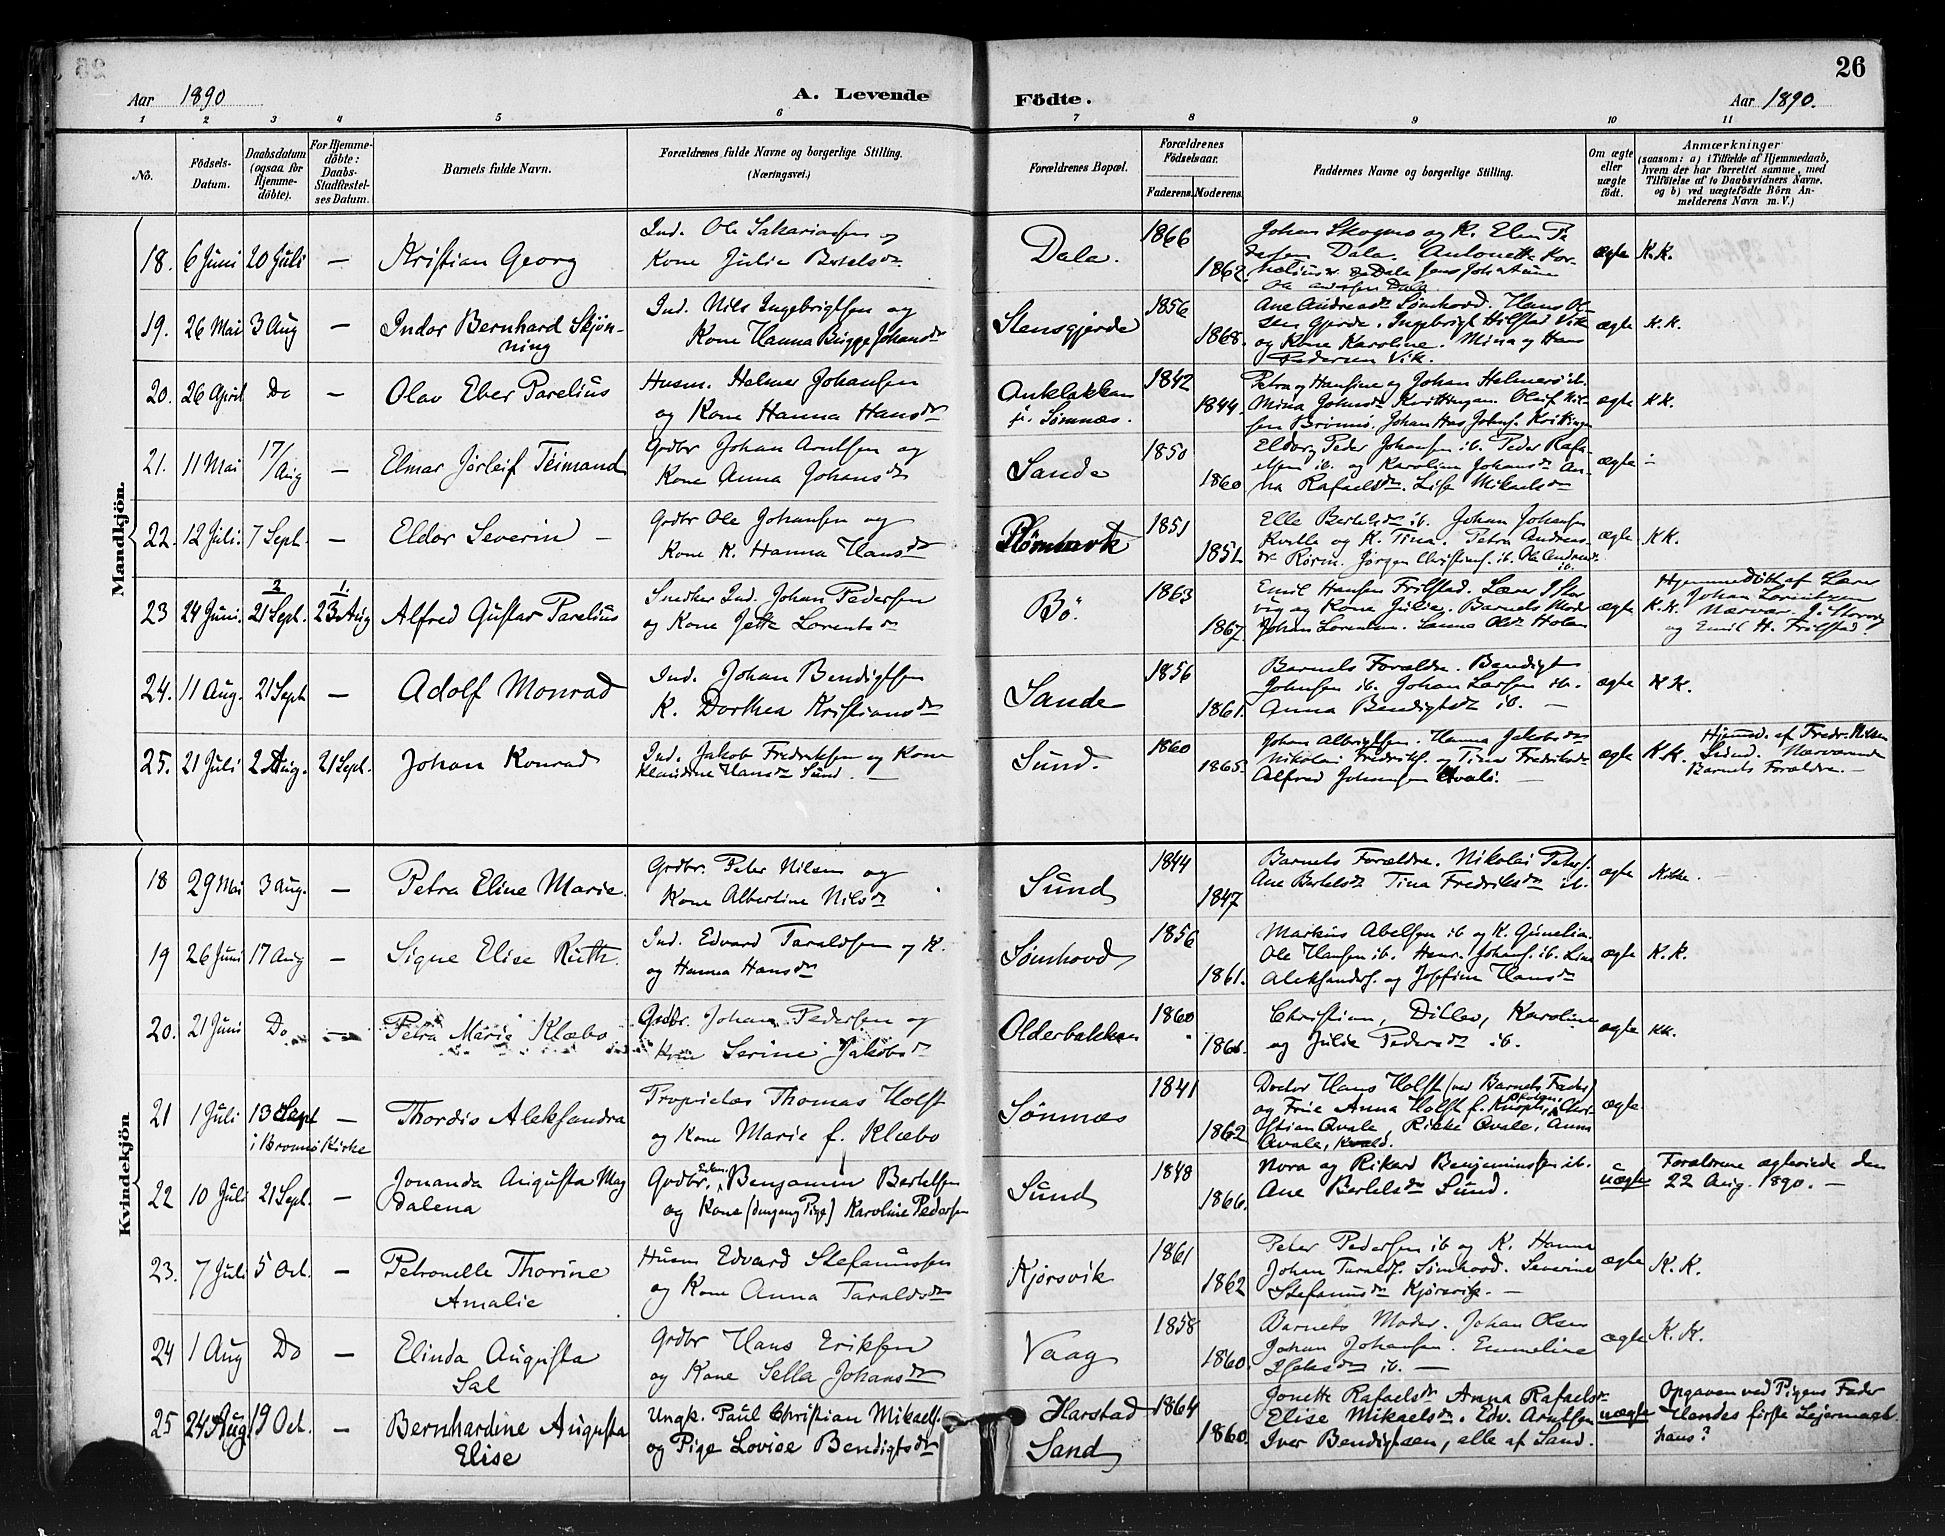 26
Aar 1890
A. Levende
Födte.
Aar 1890.
1 2 3 4 5 6 7 8 9 10 11
No.
Födsels-
Datum.
Daabsdatum
(ogsaa for
Hjemme-
döbte).
For Hjemme-
döbte:
Daabs-
Stadfæstel-
ses Datum.
Barnets fulde Navn.
Forældrenes fulde Navne og borgerlige Stilling.
(Næringsvei.)
Forældrenes Bopæl.
Forældrenes
Födselsaar.
Faderens. Moderens.
Faddernes Navne og borgerlige Stilling.
Om ægte
eller
uægte
födt.
Anmærkninger
(saasom: a) i Tilfælde af Hjemmedaab,
hvem der har forrettet samme, med
Tilföielse af to Daabsvidners Navne.
og b) ved uægtefödte Börn An-
melderens Navn m. V.)
Mandkjön.
18. 6 Juni 20 Juli — Kristian Georg
Ind. Ole Sakariassen og
Kone Julie Bertelsdr
Dala. 1866 1862.
Johan Skogmo og K. Elen Pe
dersen Dala. Antonette Kor-
ægte K.K.
19. 26 Mai 3 Aug — Indor Bernhard Skjøn-
ning
Ind. Nils Ingebrigtsen og
Kone Hanna Bugge Johansdr
Stensgjerde 1856 1868.
Ane Andreasdr Sømhovd. Hans Ol-
sen Gjerde. Ingebrigt Hilstad Vik
og Kone Karoline. Mina og Hans
Pedersen Vik.
ægte K.K.
20. 26 April Do — Olav Eber Parelius
Husm. Helmer Johansen
og Kone Hanna Hansdr
Sømnæs. 1842 1844.
Petra og Hansine og Johan Helmers ib.
ægte K.K.
21. 11 Mai 17/Aug — Elmar Jørleif Teimand
Grdbr Johan Arntsen og
Kone Anna Johansdr
Sande 1850 1860
Eldor og Peder Johansen ib. Peder Rafa-
elsen ib. og Karoline Johansdr An-
na Rafaelsdr. Lise Mikaelsdr
ægte —
22. 12 Juli. 7 Sept. — Eldor Severin —
Grdbr Ole Johansen og
Kone K. Hanna Hansdr
1851 1851.
Elle Bertelsdr ib. Johan Johansen
Kvalle og K. Tina. Petra Andreas-
dr Rørm. Jørgen Christians. ib. Ole Andreas
ib.
ægte. KK.
23 24 Juni. 2/21 Sept. 1./23 Aug Alfred Gustav Parelius
Snedker Ind. Johan Pedersen
og Kone Jette Lorentsdr
Bø. 1863 1867.
Emil Hansen Frilstad. Lærer J Stor
vig og Kone Julie. Barnets Moder
Johan Lorentsen. Sanna Olsdr Holm
ægte K.K.
Hjemmedøbt af Lærer
Johan Lorentzen
Nærvær. J. Storvig
og Emil H. Frilstad.
24. 11 Aug. 21 Sept — Adolf Monrad
Ind. Johan Bendigtsen
K. Dorthea Kristiansdr
Sande 1856 1861.
Barnets Forældre. Bendigt
Johnsen ib. Johan Larsen ib.
Anna Bendigtsdr ib. —
ægte K K.
25. 21 Juli 2 Aug. 21 Sept. Johan Konrad
Ind. Jakob Fredriksen og Kone
Klaudine Hansdr Sund. —
Sund. 1860 1865.
Johan Albrigtsen. Hanna Jakobsdr
Nikolai Fredriks. og Tina Fredriksdr
Alfred Johansen Hvals.
ægte K K.
Hjemmd. af Fredr. Nilsen
Sund. Nærværende
Barnets Forældre. —
Kvindekjön
18 29 Mai 3 Aug. — Petra Eline Marie.
Grdbr. Peter Nilsen og
Kone Albertine Nilsdr
Sund 1844 1847
Barnets Forældre. Nikolai Peters.
Ane Bertelsdr Tina Fredriksdr ib.
ægte
19 26 Juni 17 Aug — Signe Elise Ruth.
Ind. Edvard Taraldsen og K.
og Hanna Hansdr
Sømhovd 1856 1861.
Markus Abelsen ib og K. Gunelia.
Ole Hansen ib. Henr. Johans. ib. Line
Aleksanders. og Josefine Hansdr
ægte K.K.
20. 21 Juni Do — Petra Marie Klæbo
Grdbr. Johan Pedersen og
Kone Serine Jakobsdr
Olderbakken 1860 1861.
Christian, Ditlev, Karoline
og Julie Pedersdr ib.
ægte KK.
21 1 Juli 13 Sept — Thordis Aleksandra
i Brønnø Kirke
Propietær Thomas Holst
og Kone Marie f. Klæbo
Sømnæs 1841 1862
Doctor Hans Holst (ved Barnets Fader)
og Frue Anna Holst f. Knoph, Chri-
stian Qvale, Rikke Qvale, Anna
Qvale, Kvald.
ægte.
22 10 Juli 21 Sept. — Jonanda Augusta Mag
dalena
Grdbr. Benjamin Bertelsen
og Kone (dengang Pige) Karoline Pedersen
Sund 1848 1866.
Nora og Rikard Benjaminsen ib.
Ane Bertelsdr Sund.
uægte
Forældrene ægteviede den
22 Aug. 1890. —
23. 7 Juli 5 Oct. — Petronelle Thorine
Amalie
Husm Edvard Stefanussen
og Kone Anna Taraldsdr
Kjørsvik 1861 1862
Peter Pedersen ib og K. Hanna
Johan Taralds. Sømhovd. Severine
Stefanusdr Kjørsvik. —
ægte K.K.
24 1 Aug Do — Elinda Augusta
Sal
Grdbr Hans Eriksen
og Kone Sella Johansdr
Vaag 1858 1860.
Barnets Moder. Johan Olsen
Johan Johansen. Emmeline
ib. —
ægte K.K.
25 24 Aug 19 Oct. — Bernhardine Augusta
Elise
Ungk. Paul Christian Mikaels.
og Pige Lovise Bendigtsdr
Harstad
Sand 1864 1860.
Jonette Rafaelsdr Anna Rafaelsdr
Elise Mikaelsdr. Edv. Arntsen
Iver Bendigtsen, alle af Sand.
uægte
Opgaven ved Pigens Fader
Hendes første Leiermaal.
hans?